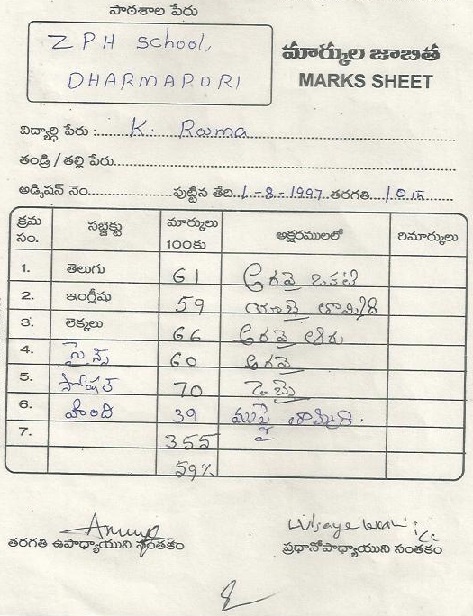 పాఠశాల పేరు
ZPH school,
DHARMAPURI
మార్కుల జాబితా
MARKS SHEET
విద్యార్థి పేరు :.....K. Rama
తండ్రి / తల్లి పేరు
అడ్మిషన్ నెం. పుట్టిన తేది 1-8-1997 తరగతి 10th
క్రమ సం. సబ్జెక్టు మార్కులు 100కు అక్షరములలో రిమార్కులు
1. తెలుగు 61 అరవై ఒకటి
2. ఇంగ్లీషు 59 యాభై తొమ్మిది
3. లెక్కలు 66 అరవై ఆరు
4. సైన్స్ 60 అరవై
5. సోషల్ 70 డెబ్బై
6. హింది 39 ముప్పై తొమ్మిది.
7. 355
59%
తరగతి ఉపాధ్యాయుని సంతకం ప్రధానోపాధ్యాయుని సంతకం